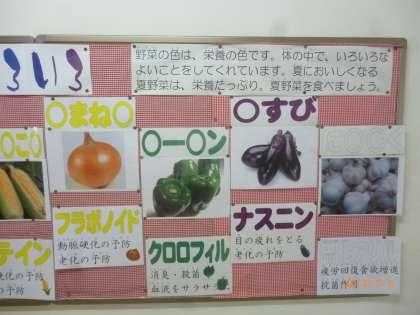 ろいろ
野菜の色は、栄養の色です。体の中で、いろいろな
よいことをしてくれています。夏においしくなる
夏野菜は、栄養たっぷり。夏野菜を食べましょう。
〇まね〇
〇すび
〇こ〇
〇ー〇ン
テイン
フラボノイド
動脈硬化の予防
老化の予防
クロロフィル
消臭・殺菌
血液をサラサラ
ナスニン
目の疲れをとる
老化の予防
疲労回復食欲増進
抗菌作用